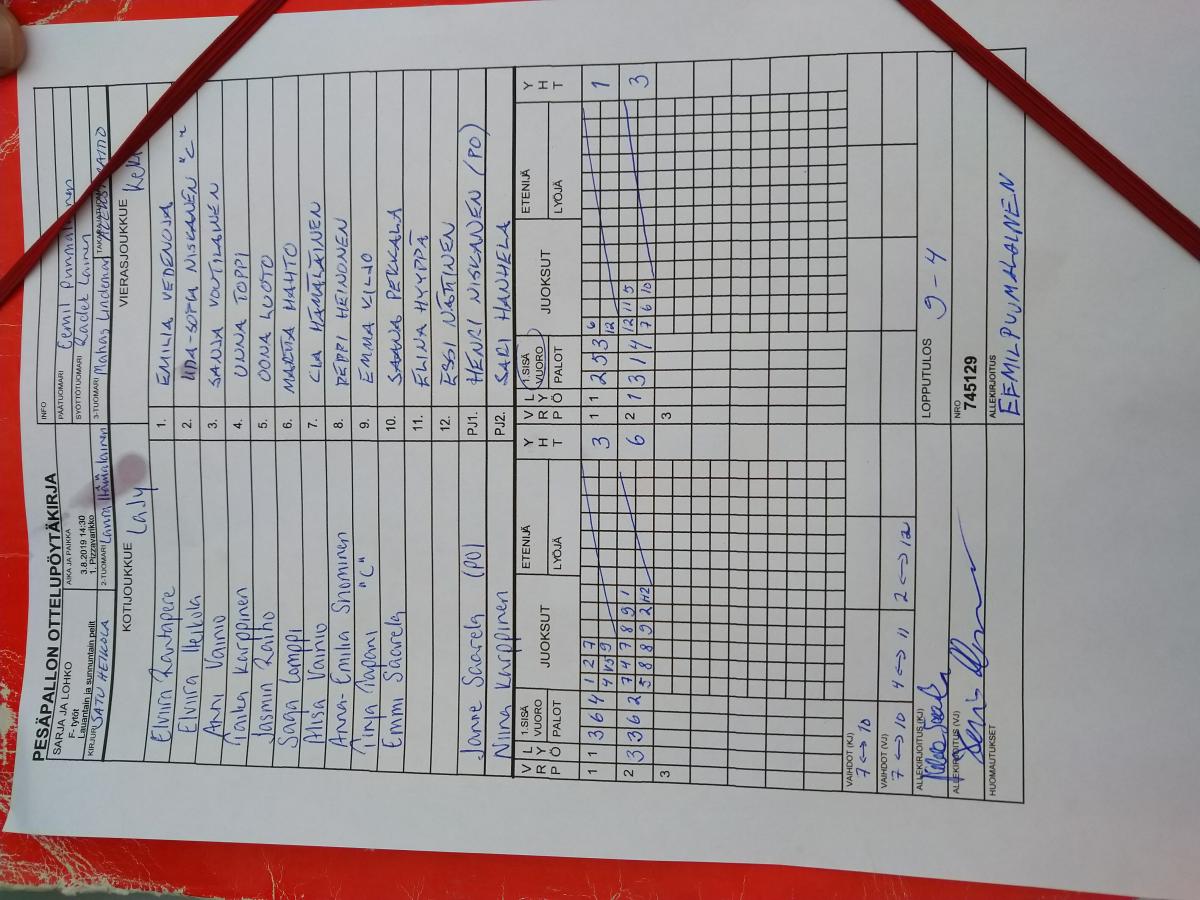 PESÄPALLON OTTELUPÖYTÄKIRJA
SARJA JA LOHKO
F- tytöt
Lauantain ja sunnuntain pelit
AIKA JA PAIKKA
3.8.2019 14:30
1. Pizzavarikko
INFO
PÄÄTUOMARI Eemil
SYÖTTÖTUOMARI Radek Lainen
KIRJURI SATU HEIKOLA
2-TUOMARI Laura Hämäläinen
3-TUOMARI Mahas Lindeman
KOTIJOUKKUE LaJy
VIERASJOUKKUE
Elviira Rantapere 1. EMILIA VEDENOJA
Elviira Heikola 2. IIDA-SOFIA NISKANEN "C"
Anni Vainio 3. SANJA VOUTILAINEN
Taika Karppinen 4. UNNA TOPPI
Jasmin Raiho 5. OONA LUOTO
Saaga Lamppi 6. MARTTA MAHTO
Alisa Vainio 7. CLA HÄMÄLÄINEN
Anna-Emilia Snominen 8. PEPPI HEINONEN
Tinja Tapani "C" 9. EMMA KILJO
Emmi Saarela 10. SAANA PEKKALA
11. ELINA HYYPPÄ
12. ESSI NÄSTINEN
Janne Saarela (PO) PJ1. HENRI NISKANEN (PO)
Niina Karppinen PJ2. SARI HANHELA
VRP LYÖ 1.SISÄ VUORO PALOT JUOKSUT ETENIJÄ LYÖJÄ YHT VRP LYÖ 1.SISÄ VUORO PALOT JUOKSUT ETENIJÄ LYÖJÄ YHT
1 1 3 6 4 1 2 7 3 1 1 2 5 3 6 1
4 9 12
2 3 3 6 2 7 4 7 8 9 1 6 2 1 3 1 4 12 11 5 3
5 8 8 9 2 7 6 10
3 3
VAIHDOT (KJ)
7 <-> 10
VAIHDOT (VJ)
7 <-> 10 4 <-> 11 2 <-> 12
ALLEKIRJOITUS (KJ)
LOPPUTULOS 9-4
ALLEKIRJOITUS (VJ)
NRO
745129
HUOMAUTUKSET
ALLEKIRJOITUS
EEMIL PUUMALAINEN